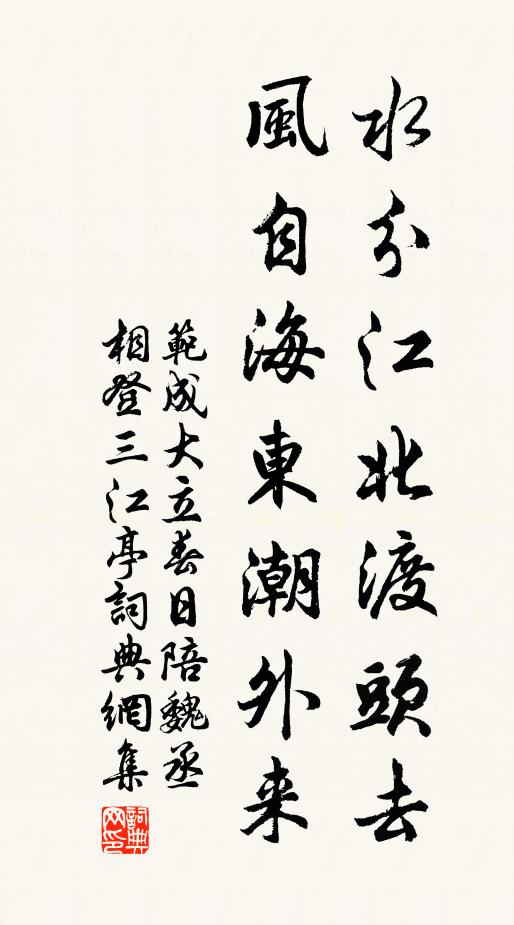 水分江北渡頭去
風自海東潮外来
範成大立春日陪魏丞
相登三江亭詞典網集
詞典网印